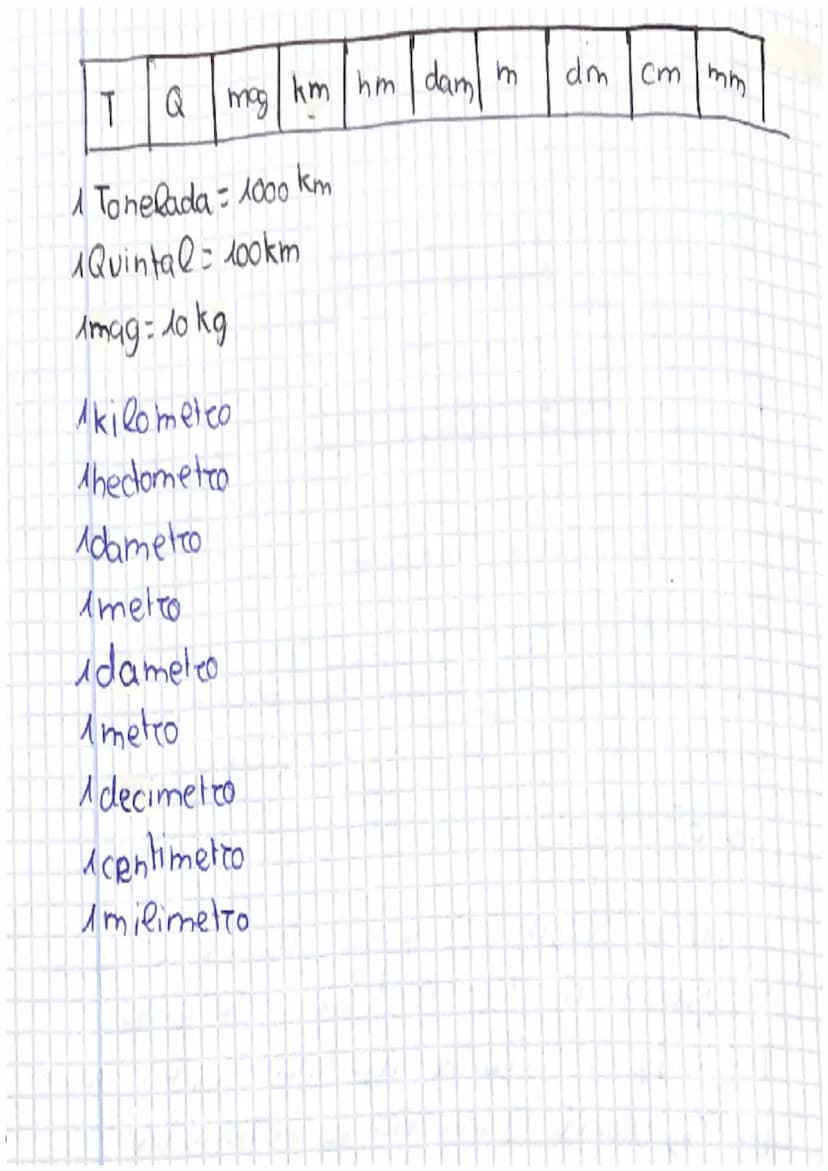 T Q mag km hm dam m dm cm mm
1 Tonelada = 1000 km
1 Quintal = 100 km
1 mag = 10 kg
1 kilometro
1 hectometro
1 dametro
1 metro
1 dametro
1 metro
1 decimetro
1 centimetro
1 milimetro